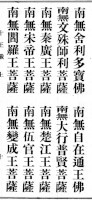 南無舍利多寶佛
南無自在通王佛
南無文殊師利菩薩
南無大行普賢菩薩
南無秦廣王菩薩
南無楚江王菩薩
南無宋帝王菩薩
南無伍官王菩薩
南無閻羅王菩薩
南無變成王菩薩